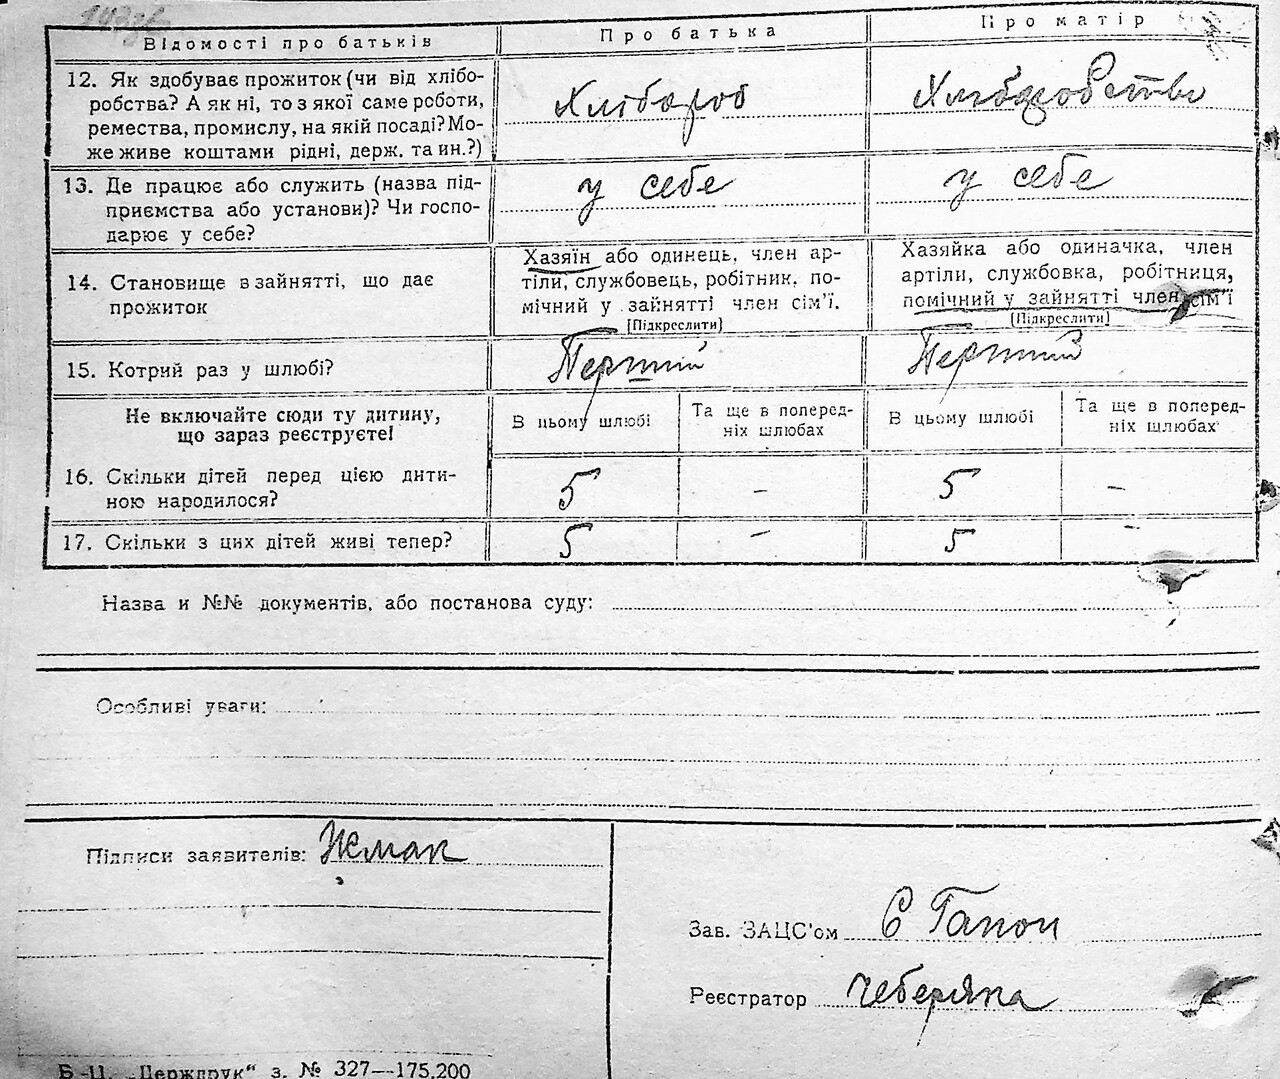 Відомості про батьків
Про батька
Про матір
12. Як здобуває прожиток (чи від хлібо-
робства? А як ні, то з якої саме роботи,
ремества, промислу, на якій посаді? Мо-
же живе коштами рідні, держ. та ин.?)
Хлібороб
Хліборобство
13. Де працює або служить (назва під-
приємства або установи)? Чи госпо-
дарює у себе?
у себе
у себе
14. Становище в зайнятті, що дає
прожиток
Хазяїн або одинець, член ар-
тіли, службовець, робітник, по-
мічний у зайнятті член сім'ї.
[Підкреслити]
Хазяйка або одиначка, член
артіли, службовка, робітниця,
помічний у зайнятті член сім'ї
[Підкреслити]
15. Котрий раз у шлюбі?
Перший
Перший
Не включайте сюди ту дитину,
що зараз реєструєте!
В цьому шлюбі
Та ще в поперед-
ніх шлюбах
В цьому шлюбі
Та ще в поперед-
ніх шлюбах
16. Скільки дітей перед цією дити-
ною народилося?
5
–
5
–
17. Скільки з цих дітей живі тепер?
5
–
5
–
Назва и №№ документів, або постанова суду:
Особливі уваги:
Підписи заявителів: Жмак
Зав. ЗАЦС'ом Є Гапон
Реєстратор Чеберяка
Б.-Ц. „Держдрук" з. № 327—175.200